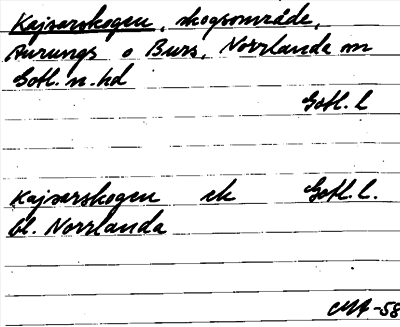 Kajsarskogen, skogsområde,
Aurungs o Burs, Norrlanda sn
Gotl. n. hd
Gotl. l
Kajsarskogen ek Gotl. l.
bl. Norrlanda
-58